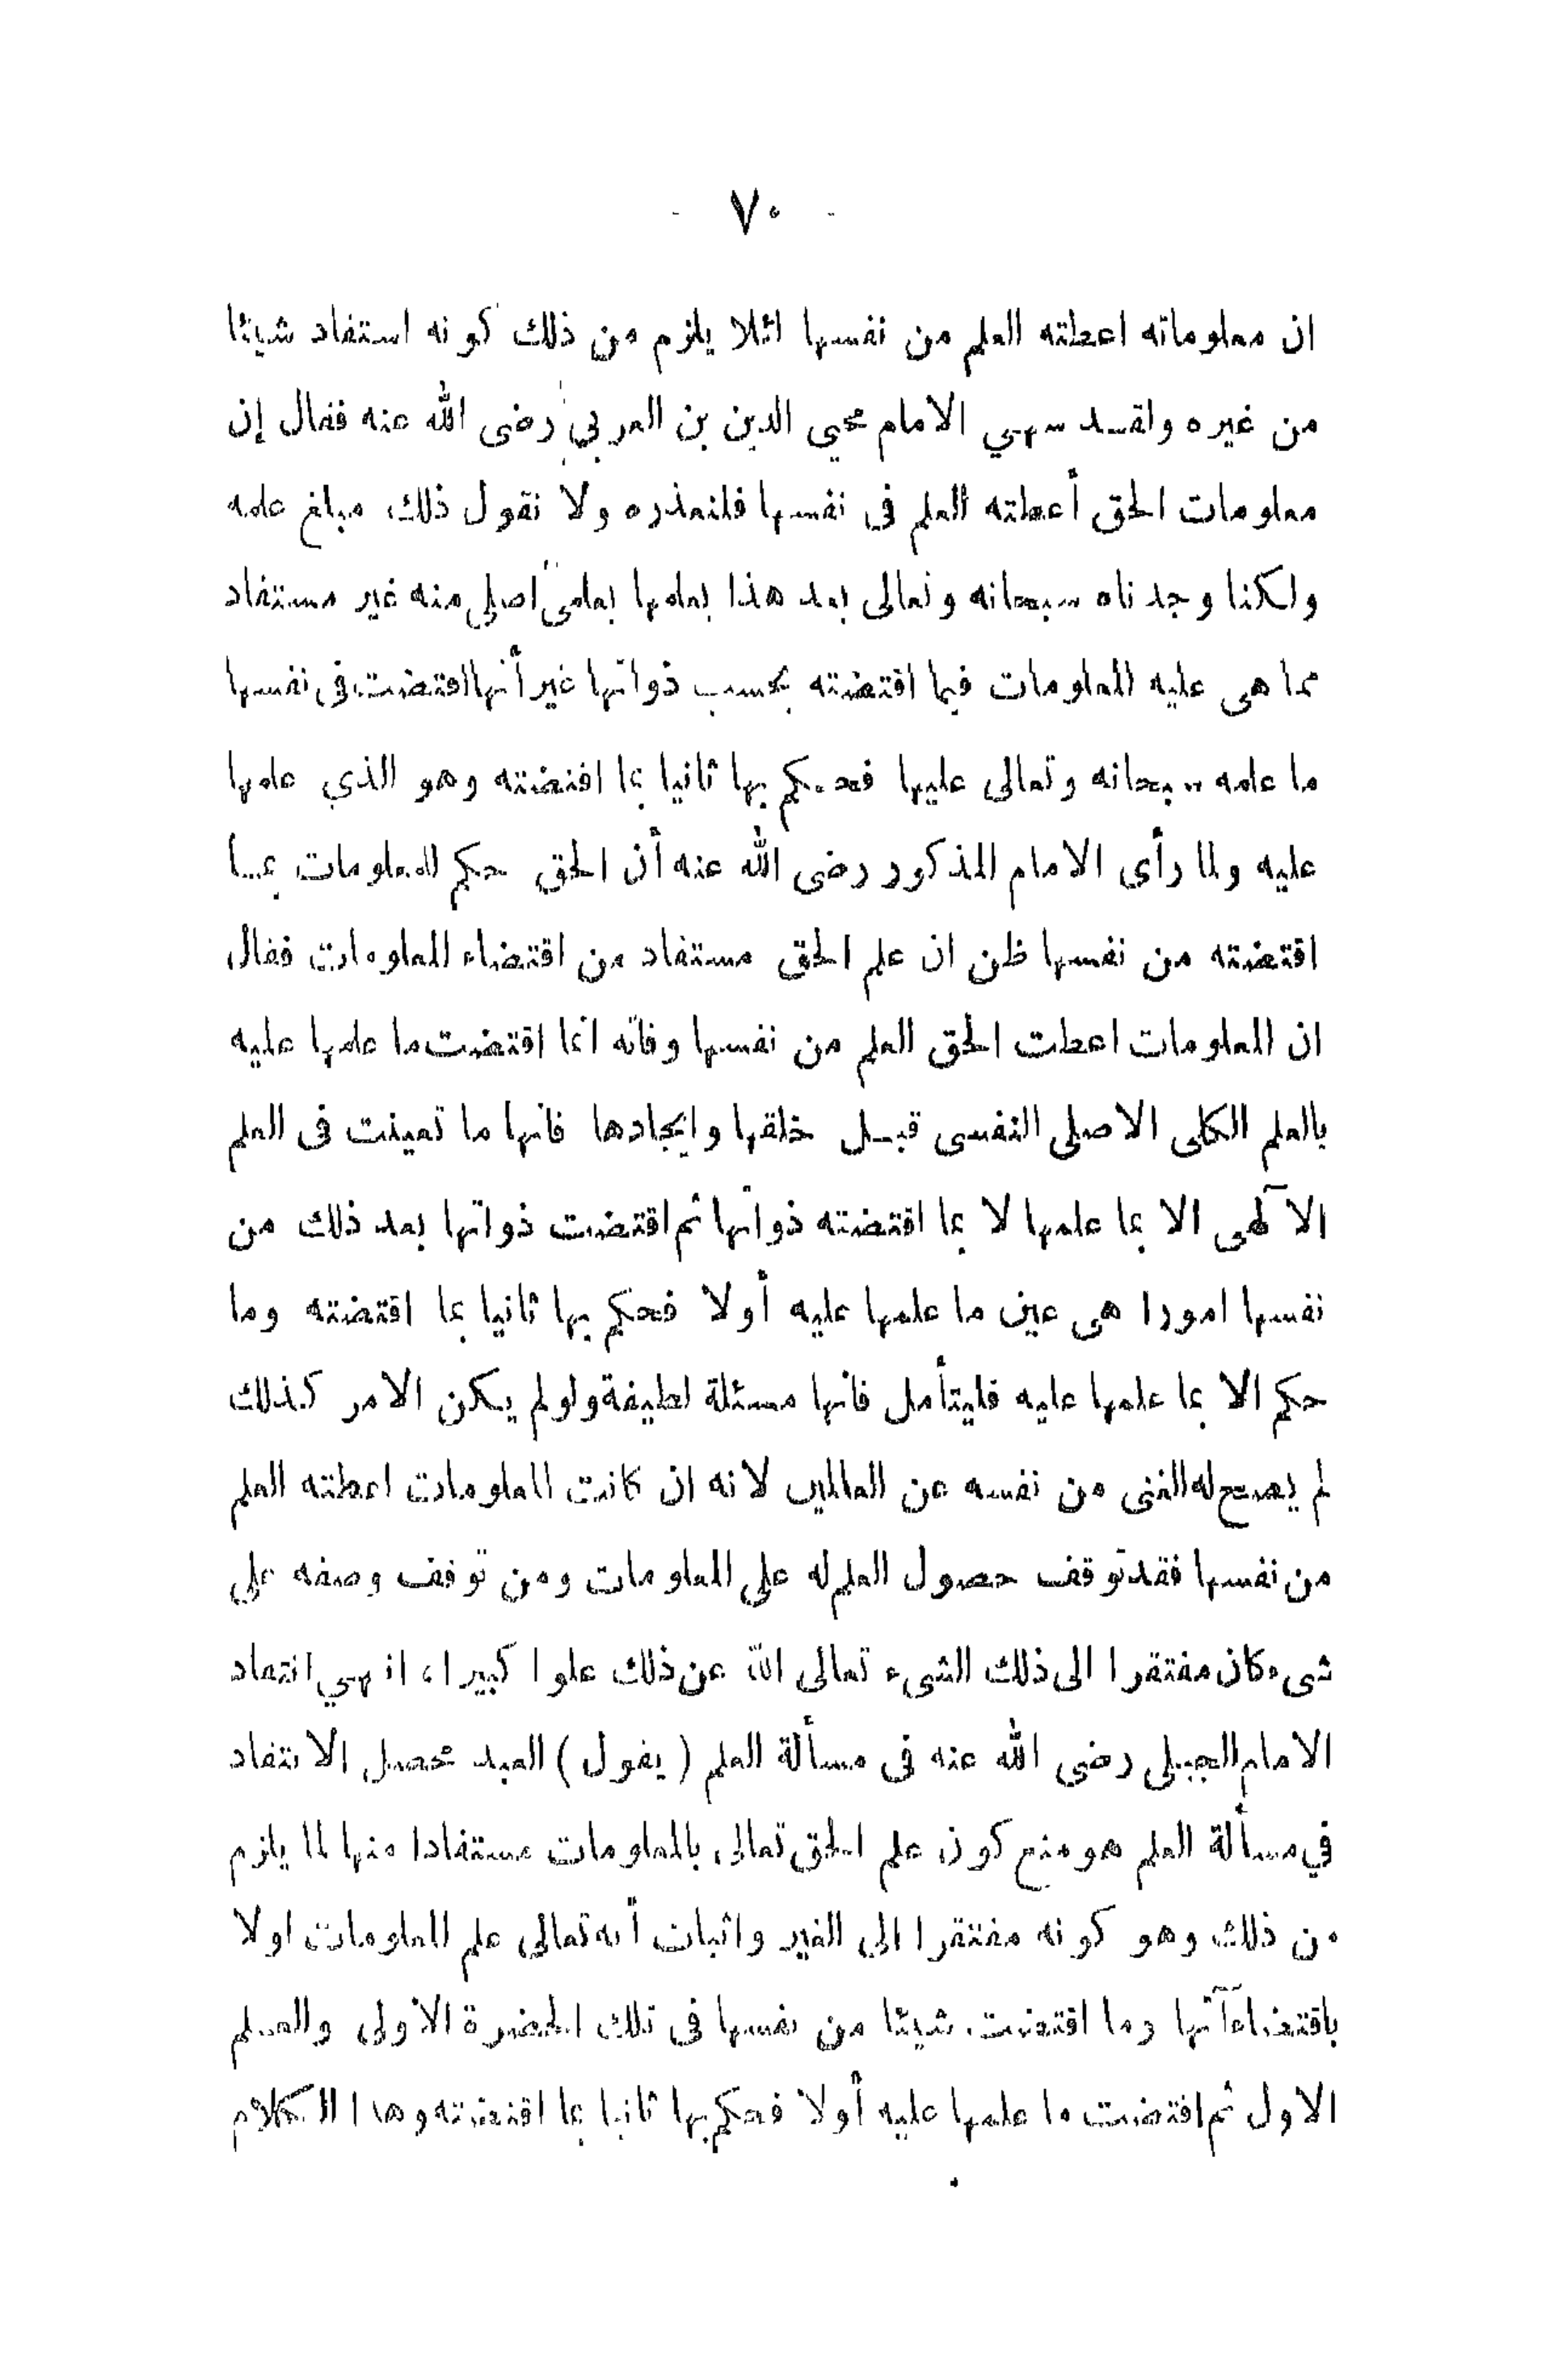 - ٧٠ -
ان معلوماته اعطته العلم من نفسها لئلا يلزم من ذلك كونه استفاد شيئا
من غيره ولقد سهى الامام محيى الدين بن العربي رضى الله عنه فقال إن
معلومات الحق أعطته العلم فى نفسها فلنعذره ولا نقول ذلك مبلغ علمه
ولكنا وجدناه سبحانه وتعالى بعد هذا يعلمها بعلم أصلى منه غير مستفاد
مما هى عليه المعلومات فيما اقتضته بحسب ذواتها غير أنها اقتضت فى نفسها
ما علمه سبحانه وتعالى عليها فحكم بها ثانيا بما اقتضته وهو الذي علمها
عليه ولما رأى الامام المذكور رضى الله عنه أن الحق حكم للمعلومات بما
اقتضته من نفسها ظن ان علم الحق مستفاد من اقتضاء المعلومات فقال
ان المعلومات اعطت الحق العلم من نفسها وفاته انما اقتضت ما علمها عليه
بالعلم الكلى الاصلى النفسى قبل خلقها وايجادها فانها ما تعينت فى العلم
الآلهى الا بما علمها لا بما اقتضته ذواتها ثم اقتضت ذواتها بعد ذلك من
نفسها امورا هى عين ما علمها عليه أولا فحكم بها ثانيا بما اقتضته وما
حكم الا بما علمها عليه فليتأمل فانها مسئلة لطيفة ولو لم يكن الامر كذلك
لم يصح له الغنى من نفسه عن العالمين لانه ان كانت المعلومات اعطته العلم
من نفسها فقد توقف حصول العلم له على المعلومات ومن توقف وصفه على
شىء كان مفتقرا الى ذلك الشىء تعالى الله عن ذلك علوا كبيرا، انهي انتقاد
الامام الجيلى رضى الله عنه فى مسألة العلم (يقول) العبد محصل الانتقاد
في مسألة العلم هو منع كون علم الحق تعالى بالمعلومات مستفادا منها لما يلزم
من ذلك وهو كونه مفتقرا الى الغير واثبات أنه تعالى علم المعلومات اولا
باقتضاءآتها وما اقتضت شيئا من نفسها فى تلك الحضرة الاولى والعلم
الاول ثم اقتضت ما علمها عليه أولا فحكم بها ثانيا بما اقتضته وهذا الكلام